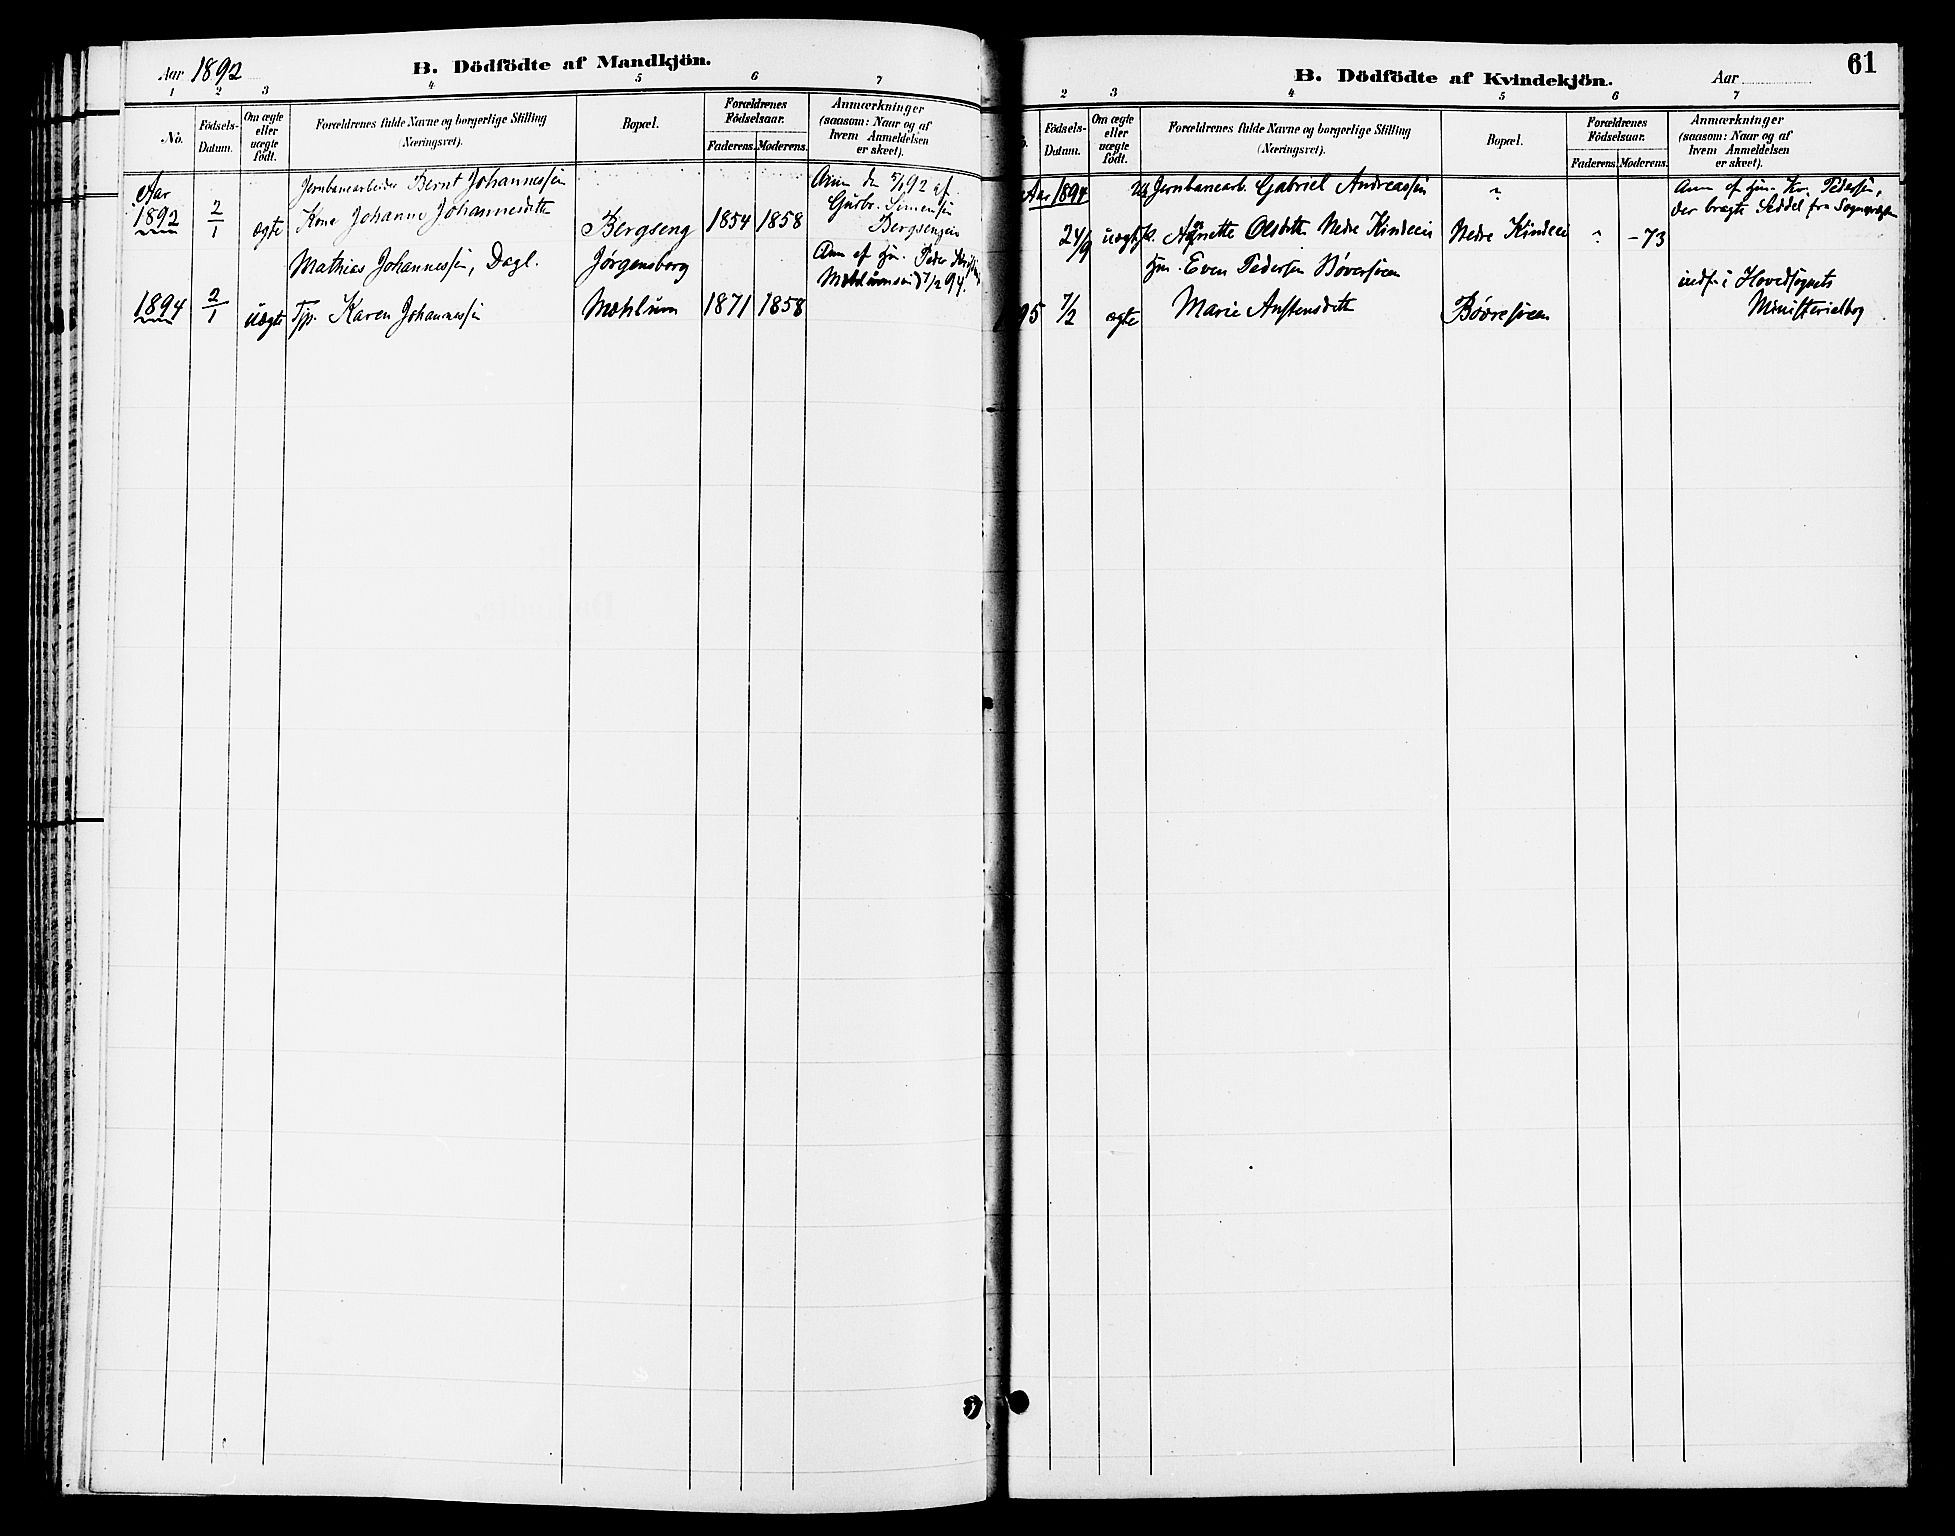 Aar 1892
B. Dödfödte af Mandkjön.
1 2 3 4 5 6 7
No.
Födsels-
Datum.
Om ægte
eller
uægte
født.
Forældrenes fulde Navne og borgerlige Stilling
(Næringsvei).
Bopæl.
Forældrenes
Födselsaar.
Faderens. Moderens.
Anmærkninger
(saasom: Naar og af
hvem Anmeldelsen
er skeet).
Aar
1892 2/1 ægte
Jernbanearbeider Bernt Johannessen
Kone Johanne Johannesdtr
Bergseng 1854 1858
Anm den 5/1 92 af
Gusbr. Simensen
Bergsengen
1894 2/1 uægte
Mathias Johannessen, Dagl.
Tjp. Karen Johannessen
Jørgensborg
Mæhlum 1871 1858
Anm af Gm. Peder
7/2 94.
B. Dödfödte af Kvindekjön.
Aar
61
2 3 4 5 6 7
Födsels-
Datum.
Om ægte
eller
uægte
födt.
Forældrenes fulde Navne og borgerlige Stilling
(Næringsvei).
Bopæl.
Forældrenes
Födselsaar.
Faderens. Moderens.
Anmærkninger
(saasom: Naar og af
hvem Anmeldelsen
er skeet).
Aar 1894
24/9 uægte
Jernbanearb. Gabriel Andreassen
Olsdtr Nedre Kindlien
Nedre Kindlien
-73
Anm af Gm. Kr. Pedersen,
der bragte Seddel fra
95 7/2 ægte
Gm. Even Pedersen Bøversveen
Marie Anstensdtr
Bøvresveen
indf. i Hovedsognets
Ministerialbog